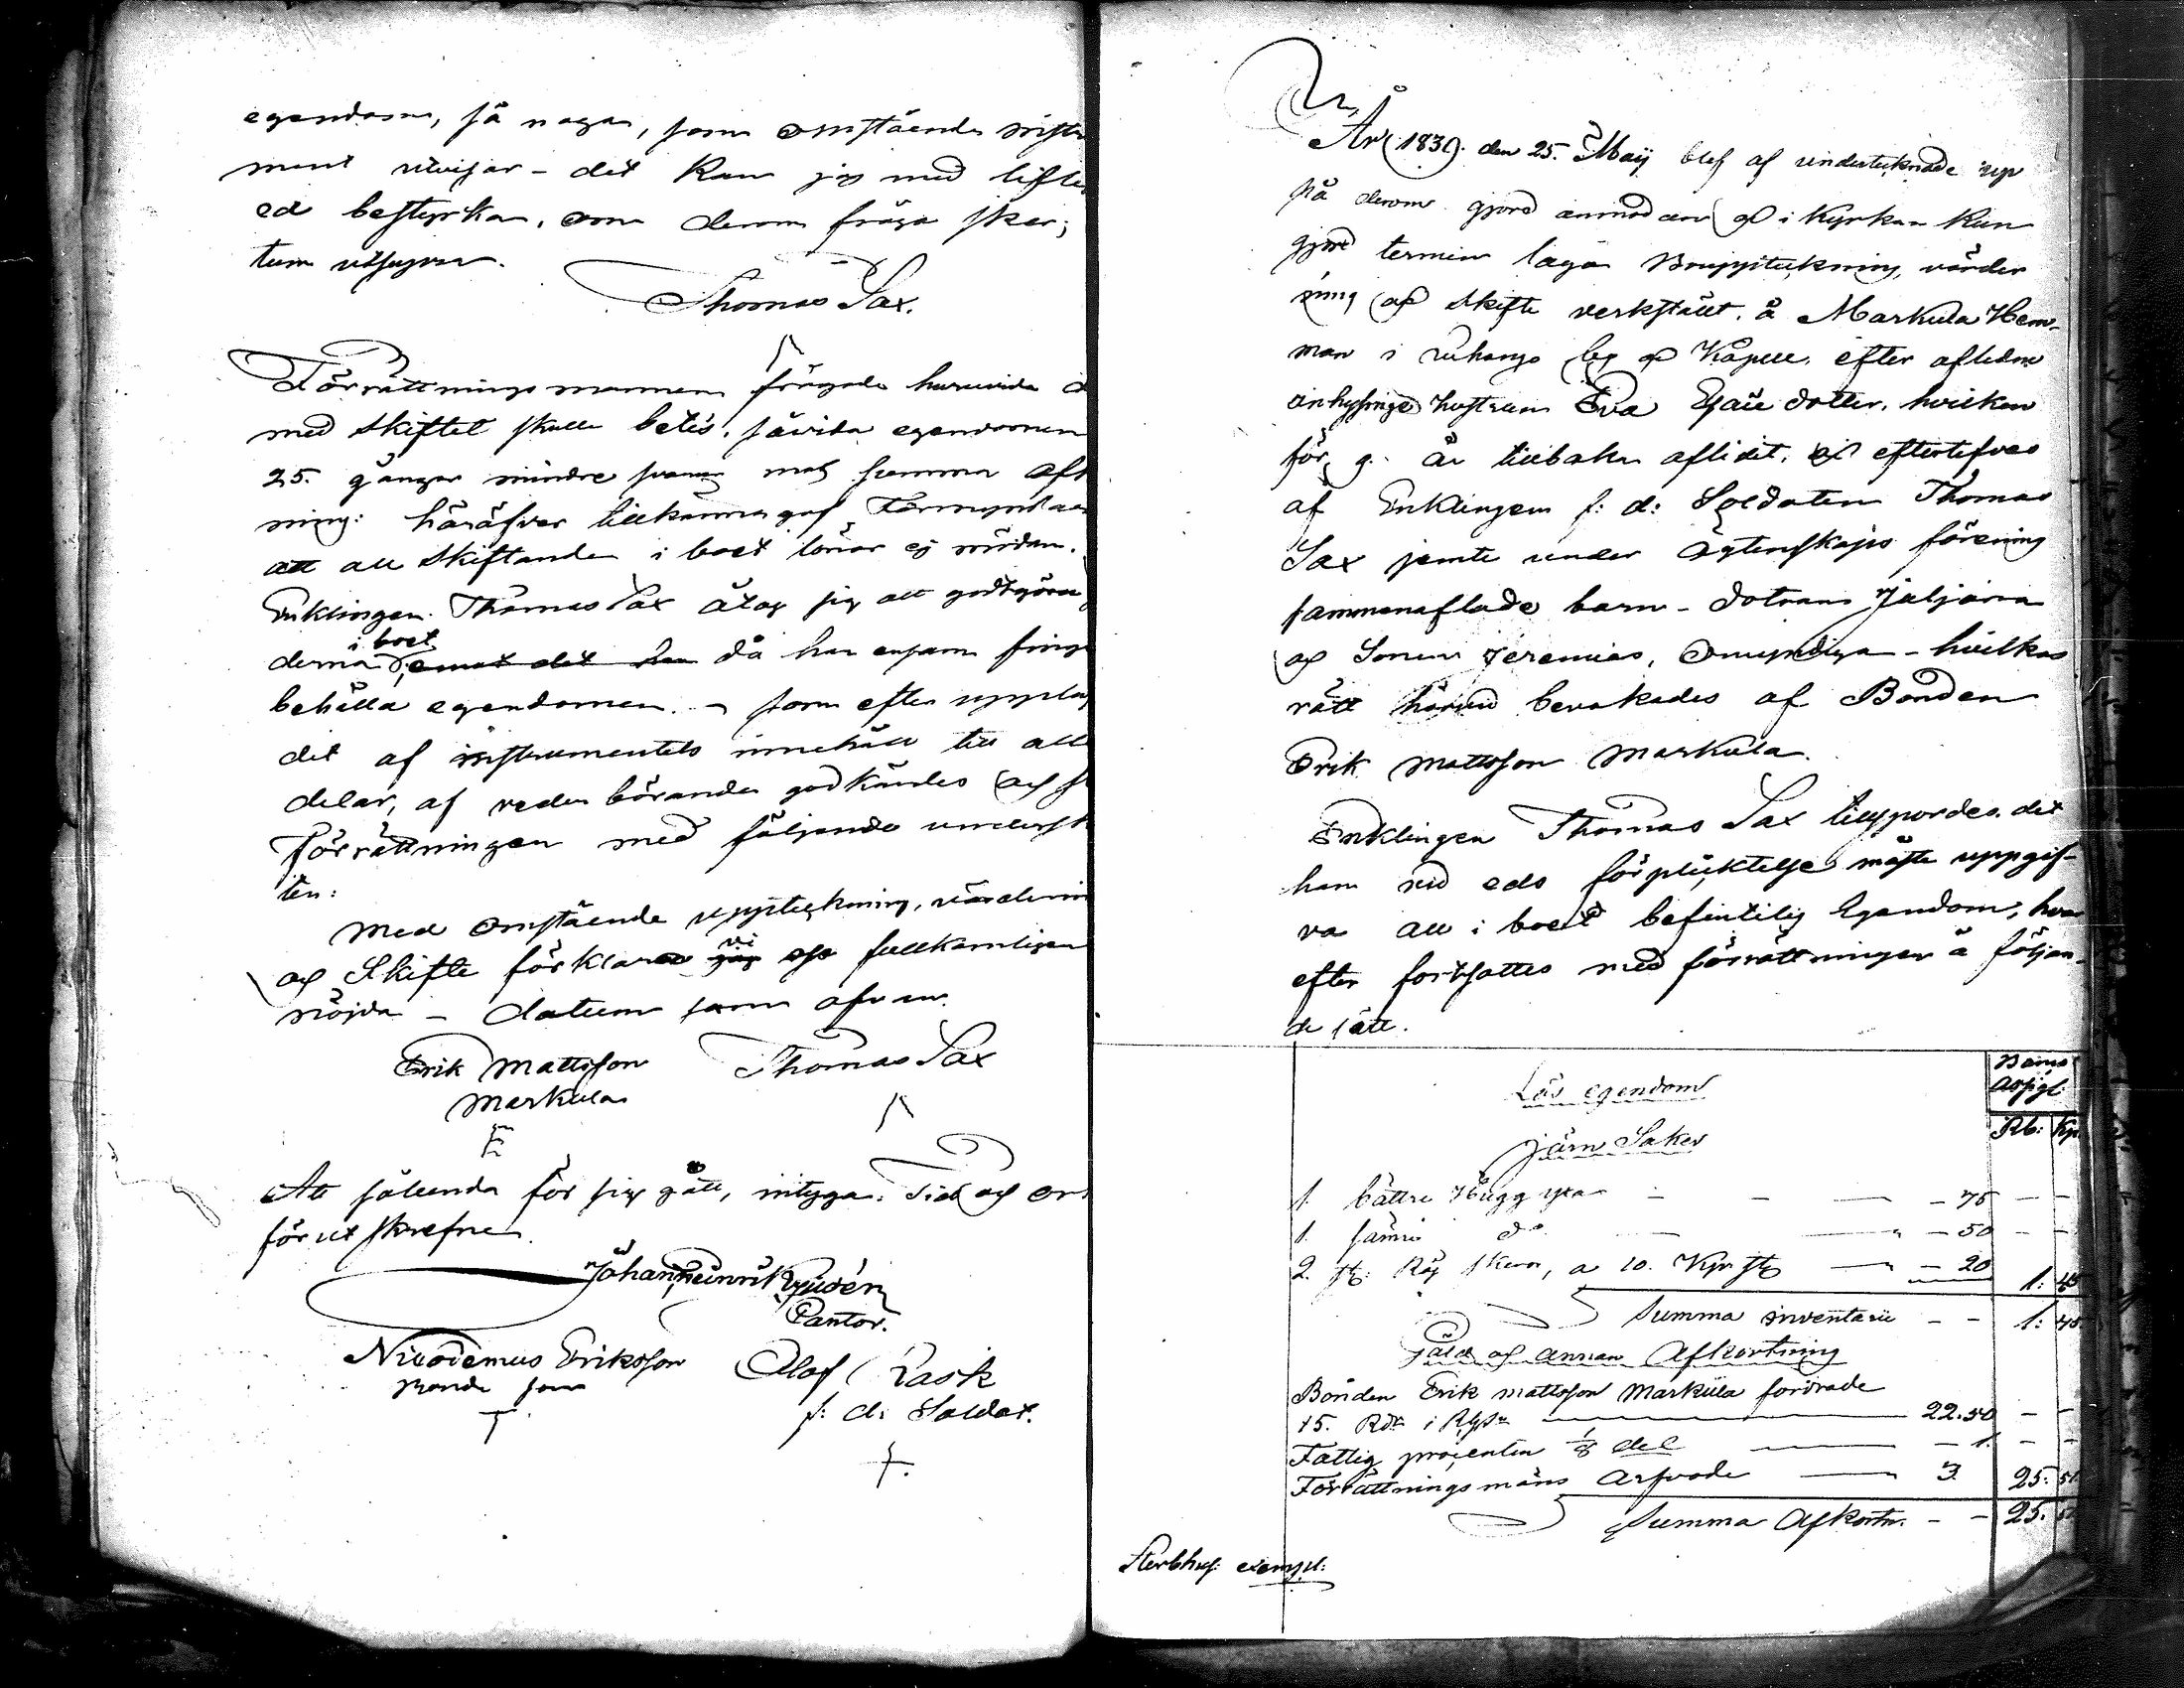 egendom, så nogen, som omstående instru
ment utvisar - det kan jag med liflig
ed bestyrka, om derom fråga sker;
tum utsupra.
Thomas Sax.
Förrättningsmannen frågade huruvida d
med skiftet skulle bete's, såvida egendomen
25. gånger mindre svarar mot summa afk
ning: häröfver tillkännagaf Förmyndaren
att all skiftande i boet lönar ej mödan.
Enklingen Thomas Sax åtog sig att godtgöra
i boet
derna, emot det han då han ensam finge
behålla egendomen - som efter uppläs
det af instrumentets innehåll till alla
delar, af vederbörande godkändes och sl
Förrättningen med följande underskr
ten:
Med omstående uppteckning, värderin
vi
och Skifte förklara jag oss fullkomligen
nöjda - datum som ofvan.
Erik Mattsson Thomas Sax
Markula
E
At sålunda för sig gått, intyga. Tid och ort
förut skrefne
Johan Heinrik
Cantor.
Nicodemus Eriksson Olof Rask
Bonde son f: d: Soldat.
T †.
År 1830. den 25. Maij blef af undertecknade up
på derom gjord anmodan och i Kyrkan kun
gjord termin laga Bouppteckning, värder
ning och Skifte verkstält, å Markula Hem-
man i Luhango by och Kapell, efter aflidne
inhyses Hustrun Eva Esaie dotter, hvilken
för g. år tillbaka aflidit, och efterlefves
af Enklingen f: d: Soldaten Thomas
Sax jemte under ägtenskaps förening
sammanaflade barn - dotren Juljana
och Sonen Jeremias, Omyndiga - hvilkas
rätt härvid bevakades af Bonden
Erik Mattsson Markula.
Enklingen Thomas Sax tillspordes, det
han vid eds förpliktelse måste uppgif-
va all i boet befintelig Egendom; hvar
efter fortsattes med förrättningen å följan-
de sätt.
Banco
Assigt:
Lös egendom
Rb: Kp.
Järn Saker
1. bättre Hugg yxa - - - 75 - -
1. sämre do - - 50 - -
2. st: Råg skäror, a 10. Kp. st - - 20 1: 45
Summa inventarii - - 1: 45
Gäld och annan Afkortning
Bonden Erik Mattsson Markula fordrade
15. Rdr i Rgs - 22.50 - -
Fattig procenten 1/8 del - - 1. - -
Förrättningsmäns Arfvode - 3. 25. 51.
Summa Afkortn. - - 25. 51.
Sterbhus: exempl: